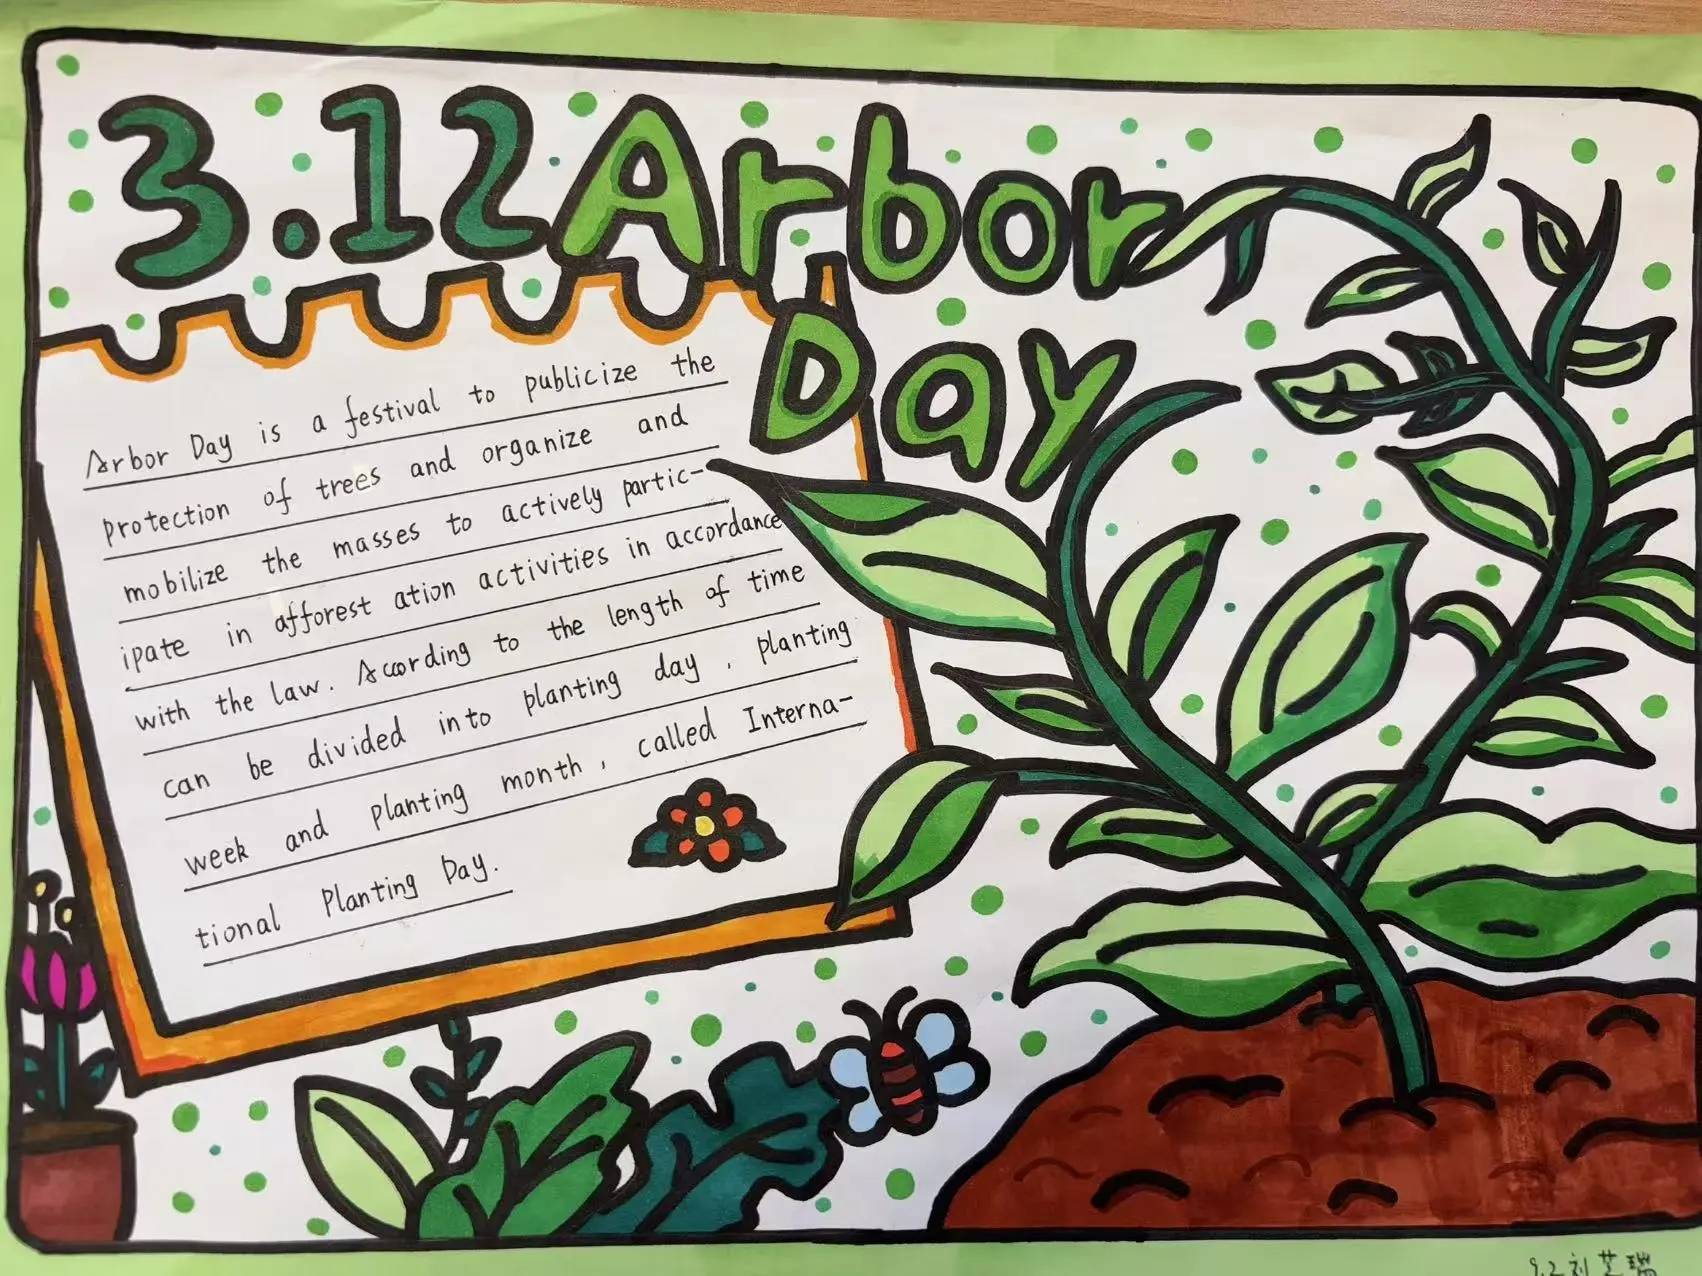 3.12 Arbor
Day
Arbor Day is a festival to publicize the
protection of trees and organize and
mobilize the masses to actively partic-
ipate in afforest ation activities in accordance
with the law. According to the length of time
can be divided into planting day, planting
week and planting month, called Interna-
tional Planting Day.
9.2 刘芝瑞